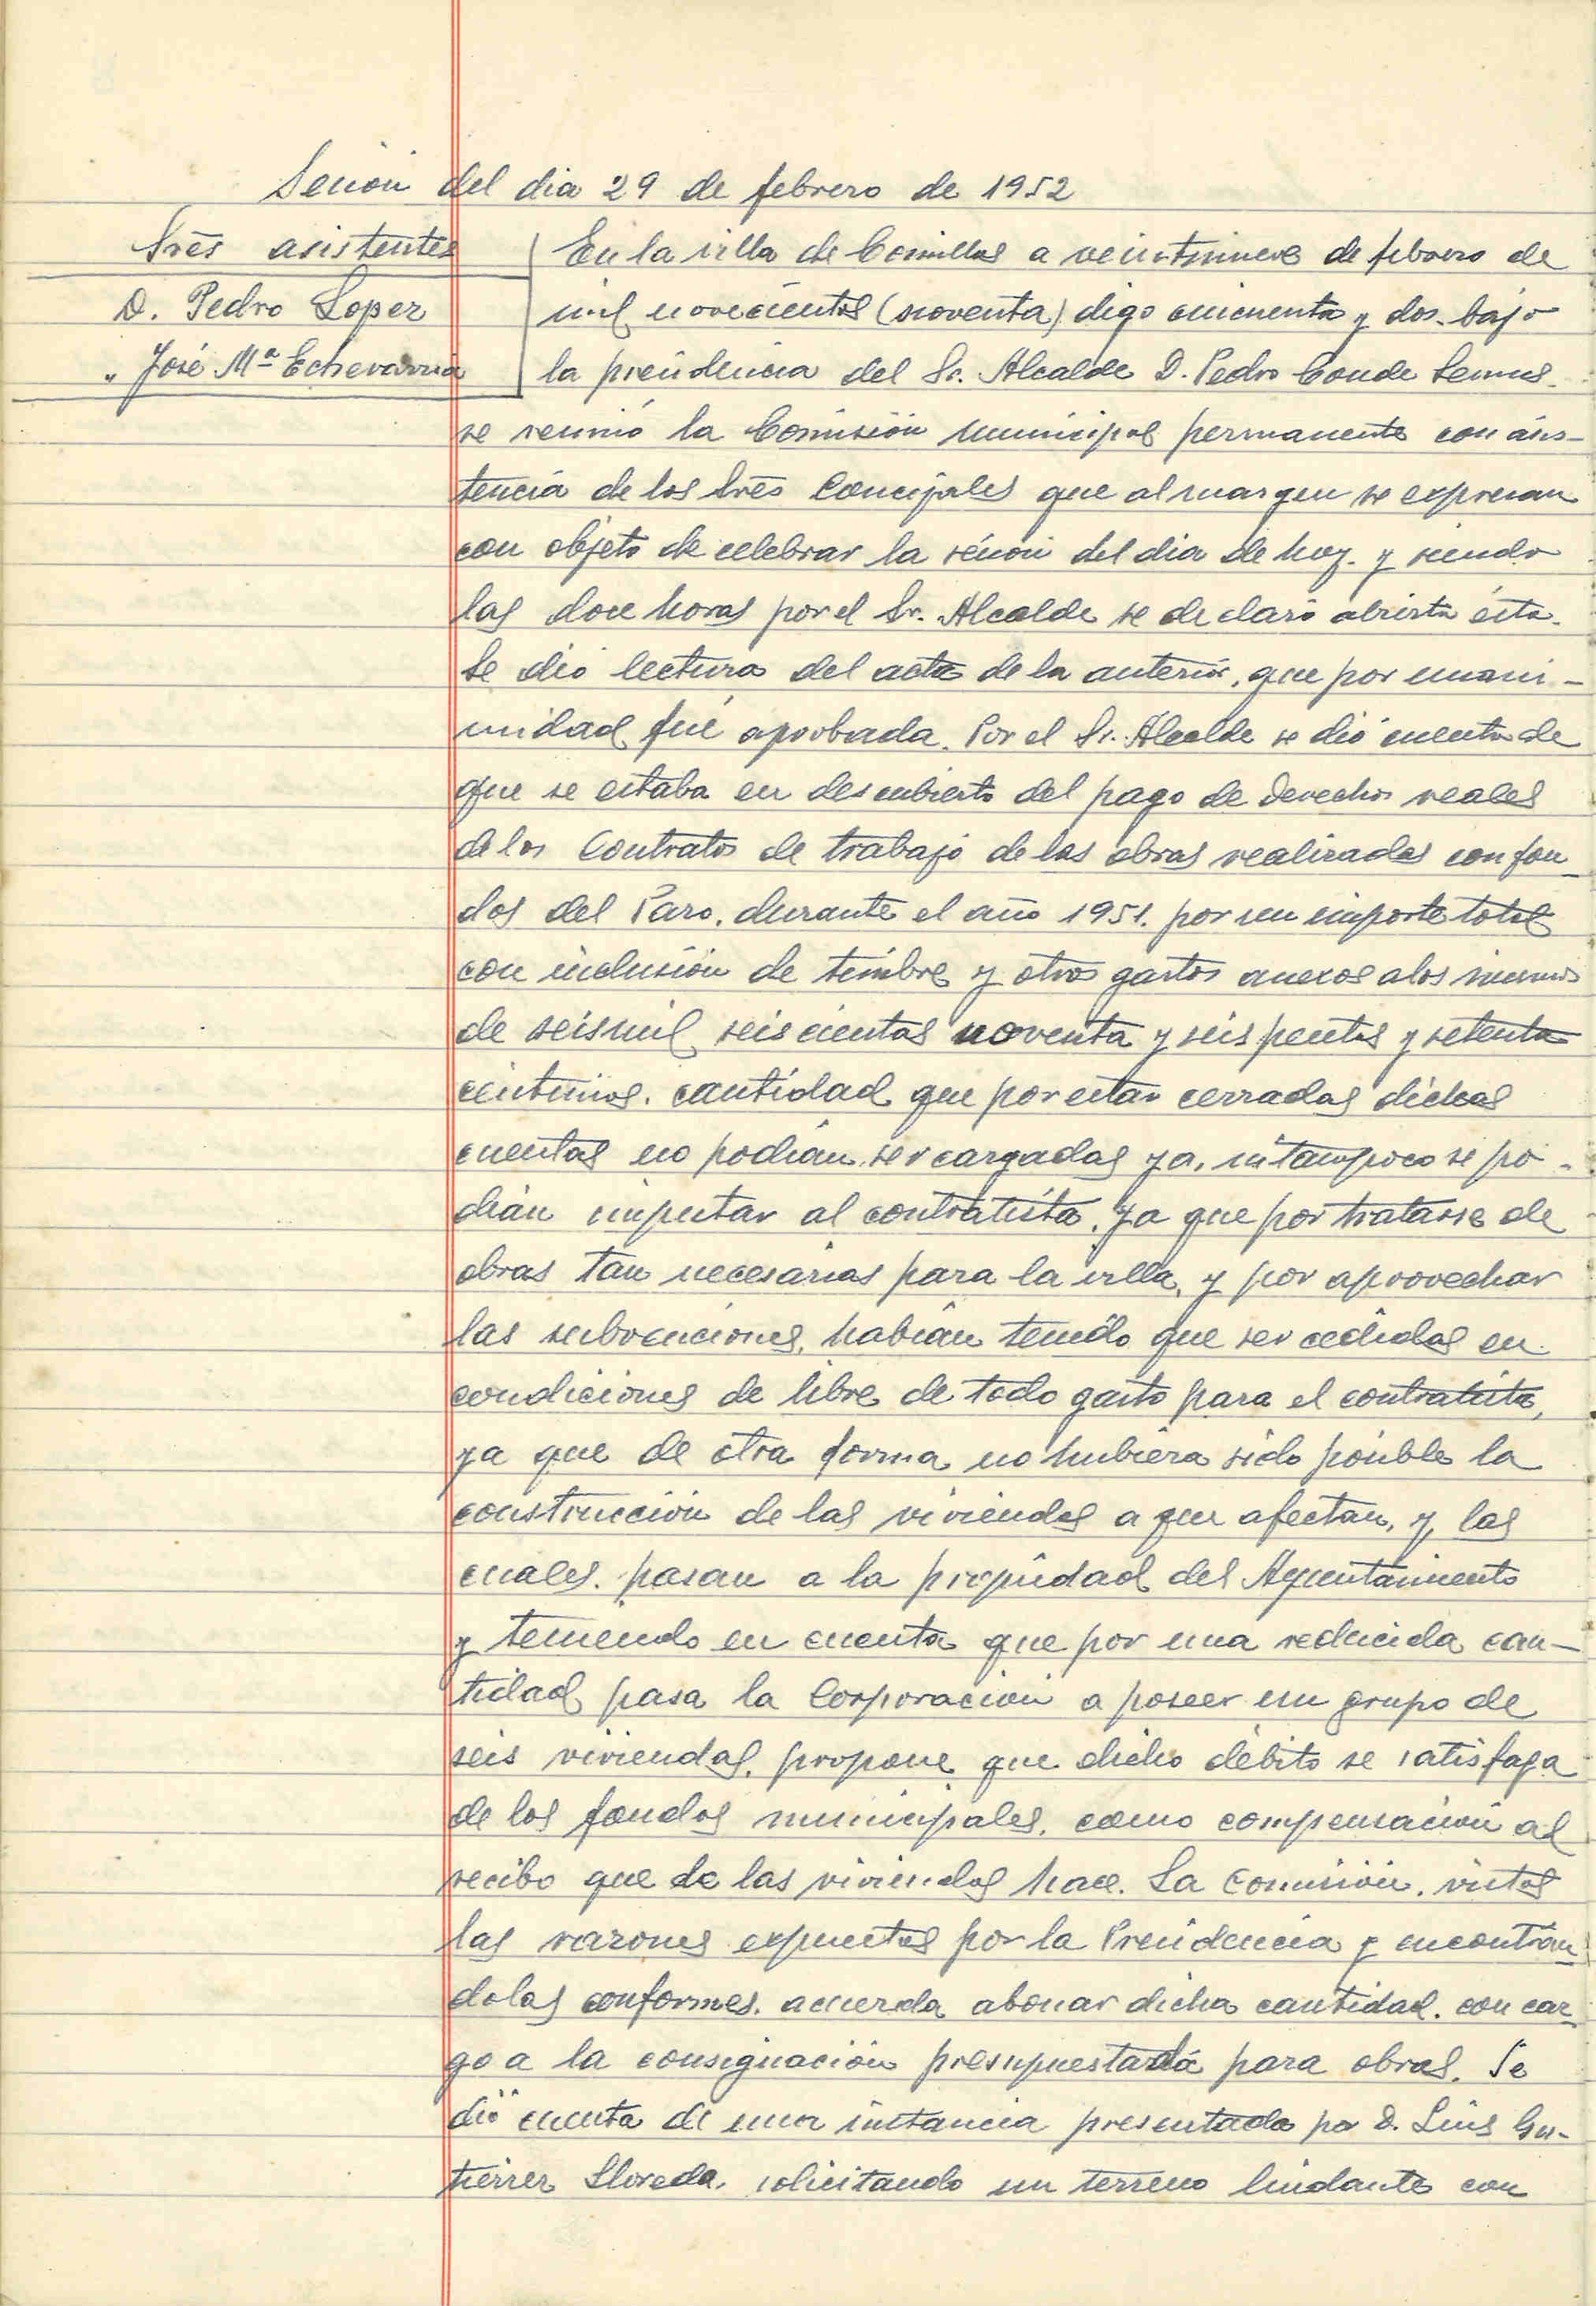 Sesión del dia 29 de febrero de 1952
Sres asistentes
D. Pedro Lopez
" José Mª Echevarria
En la villa de Comillas a veintinueve de febrero de
mil novecientos (noventa) digo cincuenta y dos. bajo
la presidencia del Sr. Alcalde D. Pedro Conde
se reunió la Comisión Municipal permanente con asis-
tencia de los Sres Concejales que al margen se expresan
con objeto de celebrar la sesión del dia de hoy. y siendo
las doce horas por el Sr. Alcalde se declaró abierta ésta.
Se dió lectura del acta de la anterior, que por unani-
midad fué aprobada. Por el Sr. Alcalde se dió cuenta de
que se estaba en descubierto del pago de derechos reales
de los Contratos de trabajo de las obras realizadas con fon-
dos del Paro. durante el año 1951. por un importe total
con inclusión de timbre y otros gastos anexos a los mismos
de seismil seiscientas noventa y seis pesetas y setenta
centimos. cantidad que por estar cerradas dichas
cuentas no podian ser cargadas ya. ni tampoco se po-
dian imputar al contratista. ya que por tratarse de
obras tan necesarias para la villa, y por aprovechar
las subvenciones, habian tenido que ser cedidas en
condiciones de libre de todo gasto para el contratista,
ya que de otra forma no hubiera sido posible la
construcción de las viviendas a que afectan, y las
cuales. pasan a la propiedad del Ayuntamiento
y teniendo en cuenta que por una reducida can-
tidad pasa la Corporación a poseer un grupo de
seis viviendas, propone que dicho débito se satisfaga
de los fondos municipales. como compensación al
recibo que de las viviendas hace. La Comision. vistas
las razones expuestas por la Presidencia y encontran-
dolas conformes. acuerda abonar dicha cantidad. con car-
go a la consignación presupuestada para obras. Se
dió cuenta de una instancia presentada por D. Luis Gu-
tierrez Lloreda. solicitando un terreno lindante con